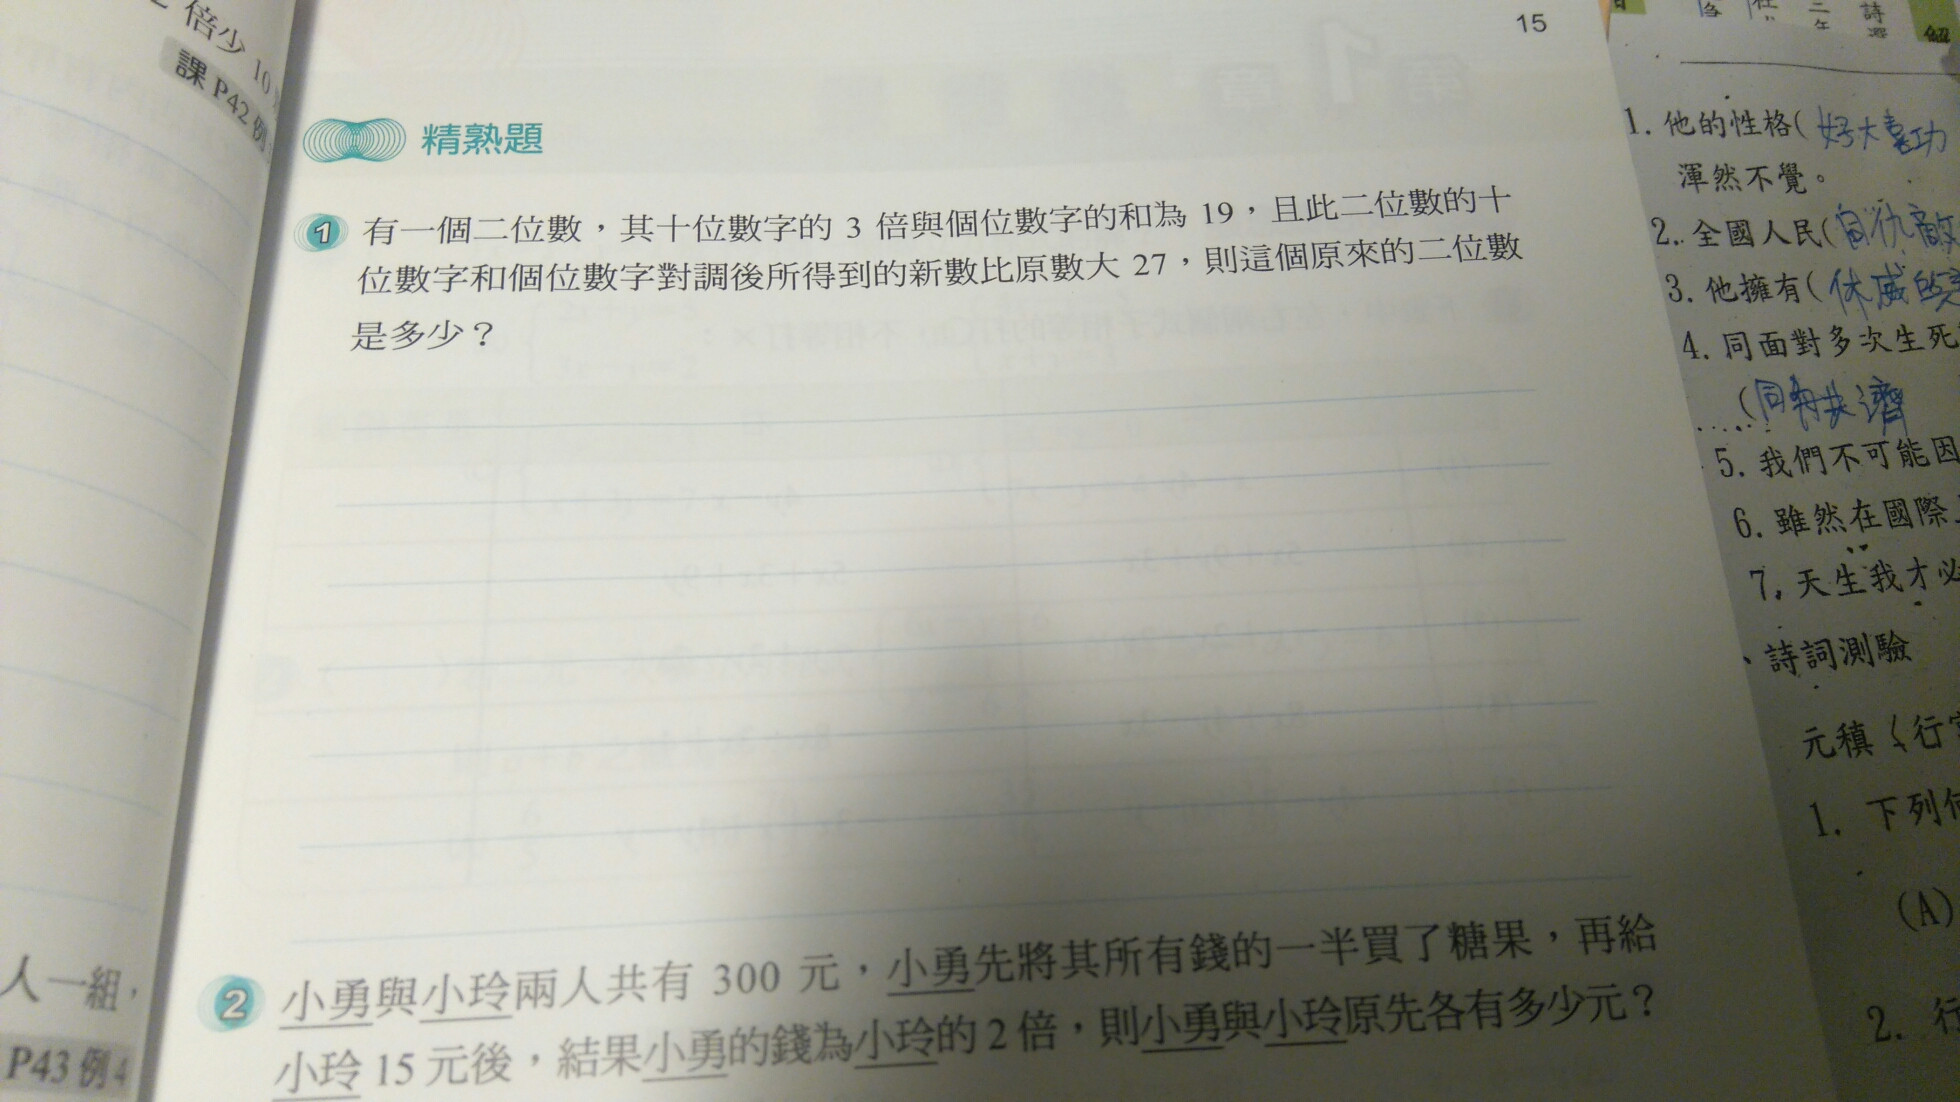 倍少 10
課 P42 例
人一組，
P43 例 4
15
精熟題
1 有一個二位數，其十位數字的 3 倍與個位數字的和為 19，且此二位數的十
位數字和個位數字對調後所得到的新數比原數大 27，則這個原來的二位數
是多少？
2 小勇與小玲兩人共有 300 元，小勇先將其所有錢的一半買了糖果，再給
小玲 15 元後，結果小勇的錢為小玲的 2 倍，則小勇與小玲原先各有多少元？
1. 他的性格( 好大喜功
渾然不覺。
2. 全國人民(
3. 他擁有( 休戚
4. 同面對多次生死
(同舟共濟
5. 我們不可能因
6. 雖然在國際
7. 天生我才必
、詩詞測驗
元稹〈行宮
1. 下列何
(A)
2. 行